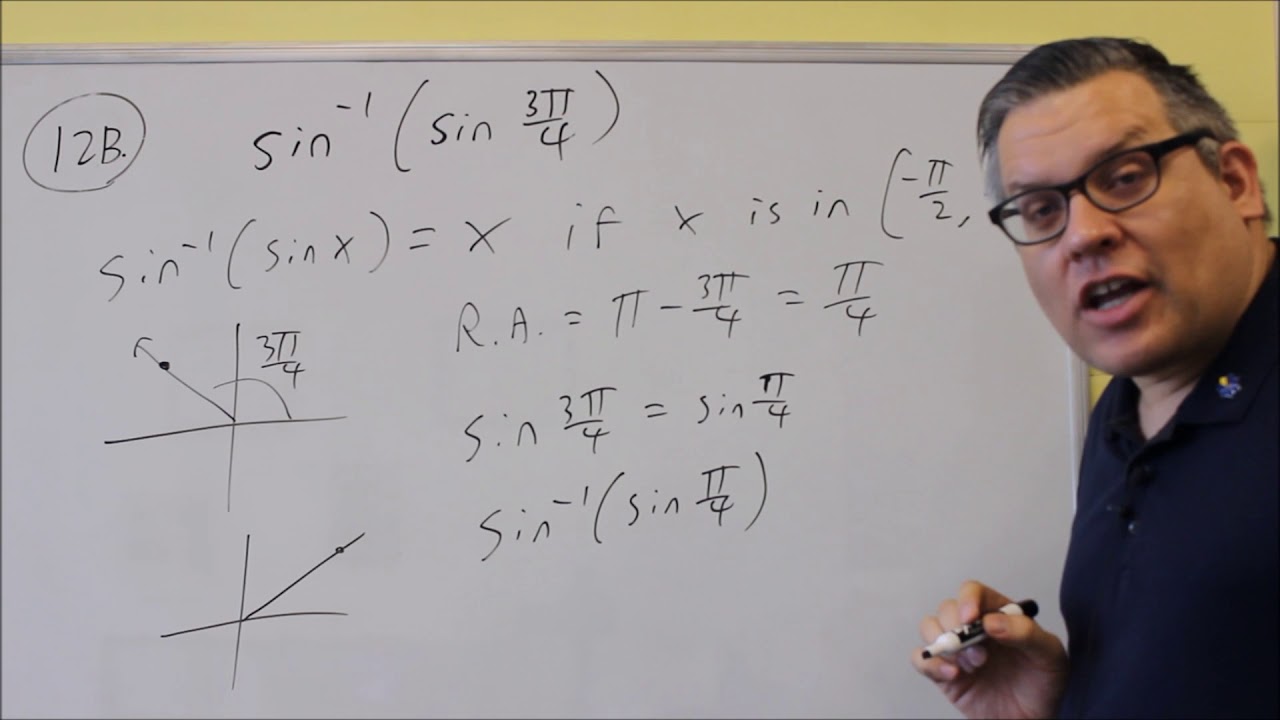 12B.
sin⁻¹(sin 3π/4)
sin⁻¹(sin x) = x if x is in [-π/2,
R.A. = π - 3π/4 = π/4
3π/4
sin 3π/4 = sin π/4
sin⁻¹(sin π/4)